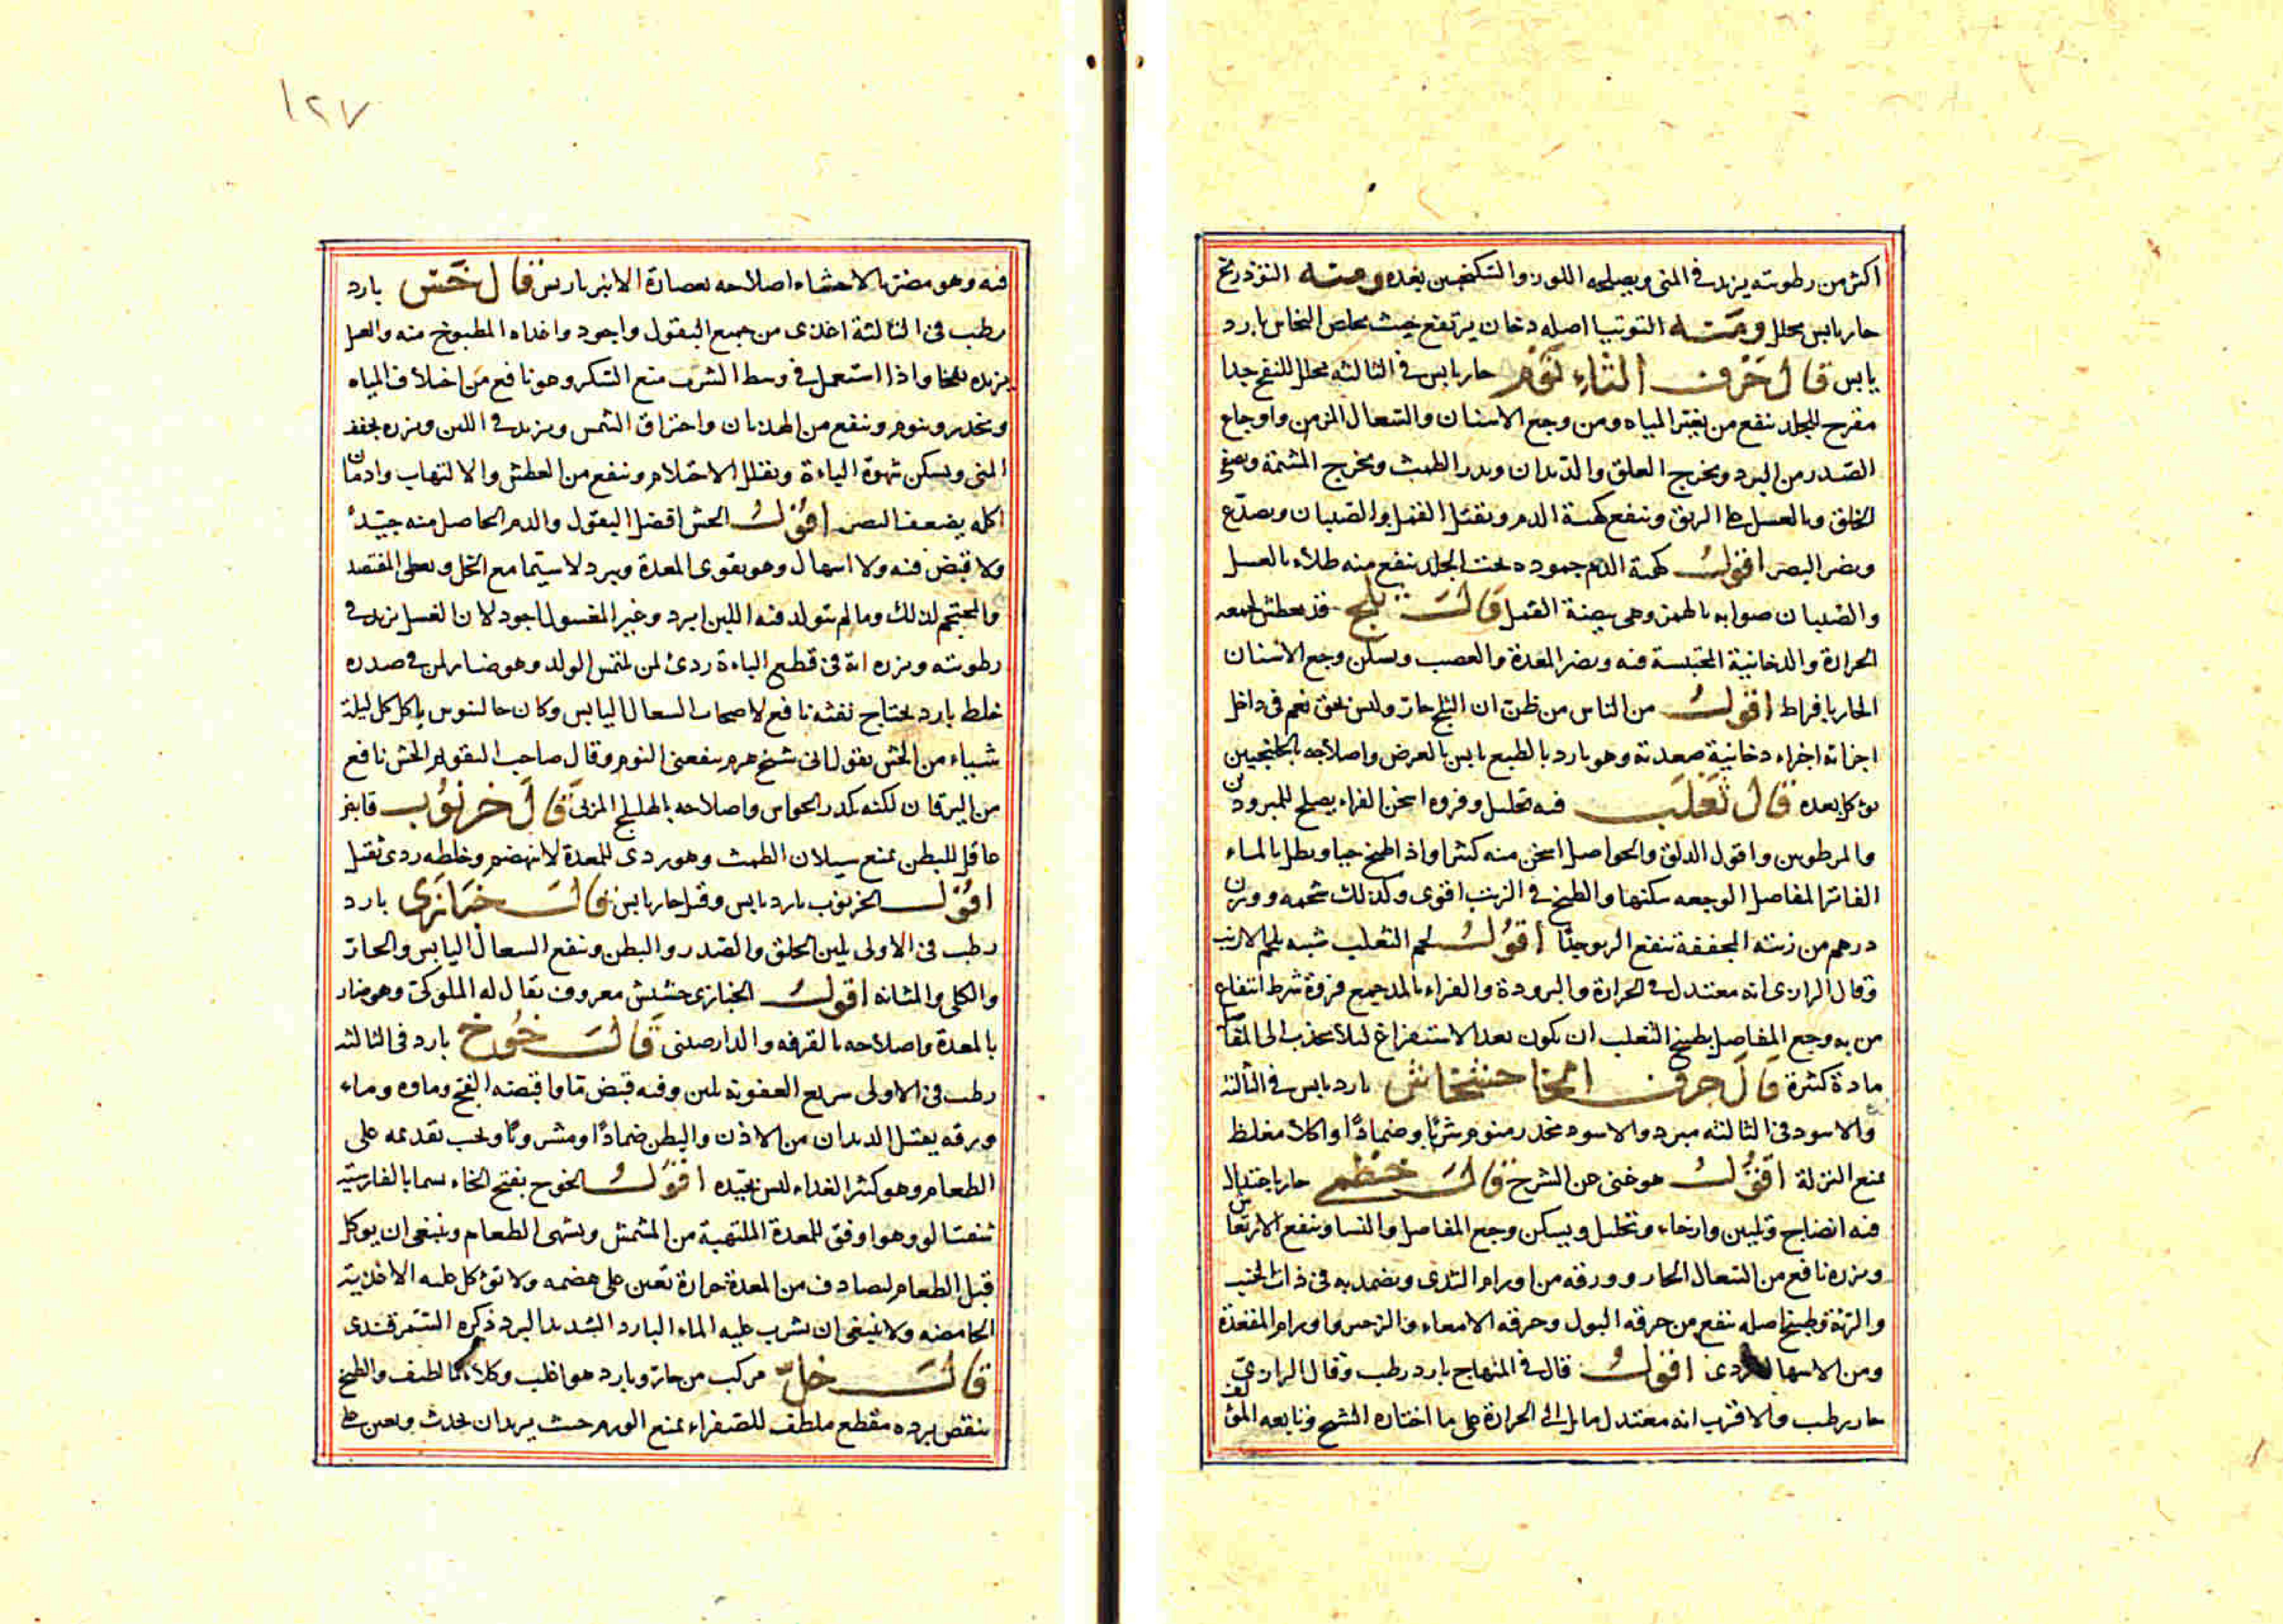 اكثر من رطوبته يزيد في المنى ويصلحه اللوز والسكنجبين بعده ومنه التوذريج
حار يابس محلل ومنه التوتيا اصله دخان يرتفع حيث يخلص النحاس بارد
يابس قال حرف الثاء ثوم حار يابس في الثالثه محلل للنفخ جدا
مقرح للجلد ينفع من تغير المياه ومن وجع الاسنان والسعال المزمن واوجاع
الصدر من البرد ويخرج العلق والديدان ويدر الطمث ويخرج المشيمة ويصفى
الحلق وبالعسل على البهق وينفع كهبة الدم ويقتل القمل والصيبان ويصدع
ويضر البصر اقول كهبة الدم جموده تحت الجلد ينفع منه طلاء بالعسل
والصيبان صوابه بالهمز وهي بيضة القمل قال ثلج قد يعطش لجمعه
الحرارة والدخانية المحتبسة فيه ويضر المعدة والعصب ويسكن وجع الاسنان
الحار بافراط اقول من الناس من ظن ان الثلج حار وليس بحق نعم في داخل
اجزائه اجزاء دخانية صعدته وهو بارد بالطبع يابس بالعرض واصلاحه بالجلنجبين
يؤكل بعده قال ثعلب فيه تحليل وفروه اسخن الفراء يصلح للمبرودين
والمرطوبين واقول الدلق والحواصل اسخن منه كثيرا واذا طبخ حيا ونطل بالماء
الفاتر المفاصل الوجعه سكنها والطبخ في الزيت اقوى وكذلك شحمه ووزن
درهم من رئته المجففة ينفع الربو جدا اقول لحم الثعلب شبيه بلحم الارنب
وقال الرازى انه معتدل في الحرارة والبرودة والفراء بالمد جمع فروة شرط انتفاع
من به وجع المفاصل بطبيخ الثعلب ان يكون بعد الاستفراغ لئلا يجذب الى المفاصل
مادة كثيرة قال حرف الخا خشخاش بارد يابس في الثالثه
والاسود في الثالثه مبرد والاسود مخدر منوم شربا وضمادا واكلا مغلظ
يمنع النزلة اقول هو غنى عن الشرح قال خطمى حار باعتدال
فيه انضاج وتليين وارخاء وتحليل ويسكن وجع المفاصل والنسا وينفع الارتعاش
وبزره نافع من السعال الحار وورقه من اورام الثدى ويضمد به في ذات الجنب
والرئة وطبيخ اصله ينفع من حرقه البول وحرقه الامعاء والزحير واورام المقعدة
ومن الاسهال الردى اقول قال في المنهاج بارد رطب وقال الرازى
حار رطب والاقرب انه معتدل مايل الى الحرارة على ما اختاره الشيخ وتابعه المؤلف
١٢٧
فيه وهو مضر بالاحشاء اصلاحه بعصارة الانبرباريس قال خس بارد
رطب في الثالثة اغذى من جميع البقول واجود واغذاه المطبوخ منه والغسل
يزيده نفخا واذا استعمل في وسط الشرب منع السكر وهو نافع من اختلاف المياه
ويخدر وينوم وينفع من الهذيان واحتراق الشمس ويزيد في اللبن وبزره يجفف
المنى ويسكن شهوة الباءة ويقلل الاحتلام وينفع من العطش والالتهاب وادمان
اكله يضعف البصر اقول الخس افضل البقول والدم الحاصل منه جيد
ولا قبض فيه ولا اسهال وهو يقوى المعدة ويبرد لاسيما مع الخل ويعطى المفتصد
والمحتجم لذلك وما لم يتولد فيه اللبن ابرد وغير المغسول اجود لان الغسل يزيد في
رطوبته وبزره انه في قطع الباءة ردئ لمن يلتمس الولد وهو ضار لمن في صدره
خلط بارد يحتاج نفثه نافع لاصحاب السعال اليابس وكان جالينوس ياكل كل ليلة
شيئا من الخس يقول انى شيخ هرم ينفعنى النوم وقال صاحب التقويم الخس نافع
من اليرقان لكنه يكدر الحواس واصلاحه بالهليلج المربى قال خرنوب قابض
عاقل للبطن يمنع سيلان الطمث وهو ردى للمعدة لا ينهضم وخلطه ردى ثقيل
اقول الخرنوب بارد يابس وقيل حار يابس قال خبازى بارد
رطب في الاولى يلين الحلق والصدر والبطن وينفع السعال اليابس والحار
والكلى والمثانه اقول الخبازى حشيش معروف يقال له الملوكى وهو ضار
بالمعدة واصلاحه بالقرفه والدارصينى قال خوخ بارد في الثالثه
رطب في الاولى سريع العفونه ملين وفيه قبض ما واقبضه الفج وماؤه وماء
ورقه يقتل الديدان من الاذن والبطن ضمادا ومشروبا ويجب تقديمه على
الطعام وهو كثير الغذاء ليس بجيده اقول الخوخ بفتح الخاء يسمى بالفارسية
شفتالو وهو اوفق للمعدة الملتهبة من المشمش ويشهى الطعام وينبغى ان يوكل
قبل الطعام ليصادف من المعدة حرارة تعين على هضمه ولا تؤكل عليه الاغذية
الحامضه ولا ينبغى ان يشرب عليه الماء البارد الشديد البرد ذكره السمرقندى
قال خل مركب من حار وبارد هو اغلب وكلاهما لطيف والطبخ
ينقص برده مقطع ملطف للصفراء يمنع الورم حيث يريد ان يحدث ويعين على